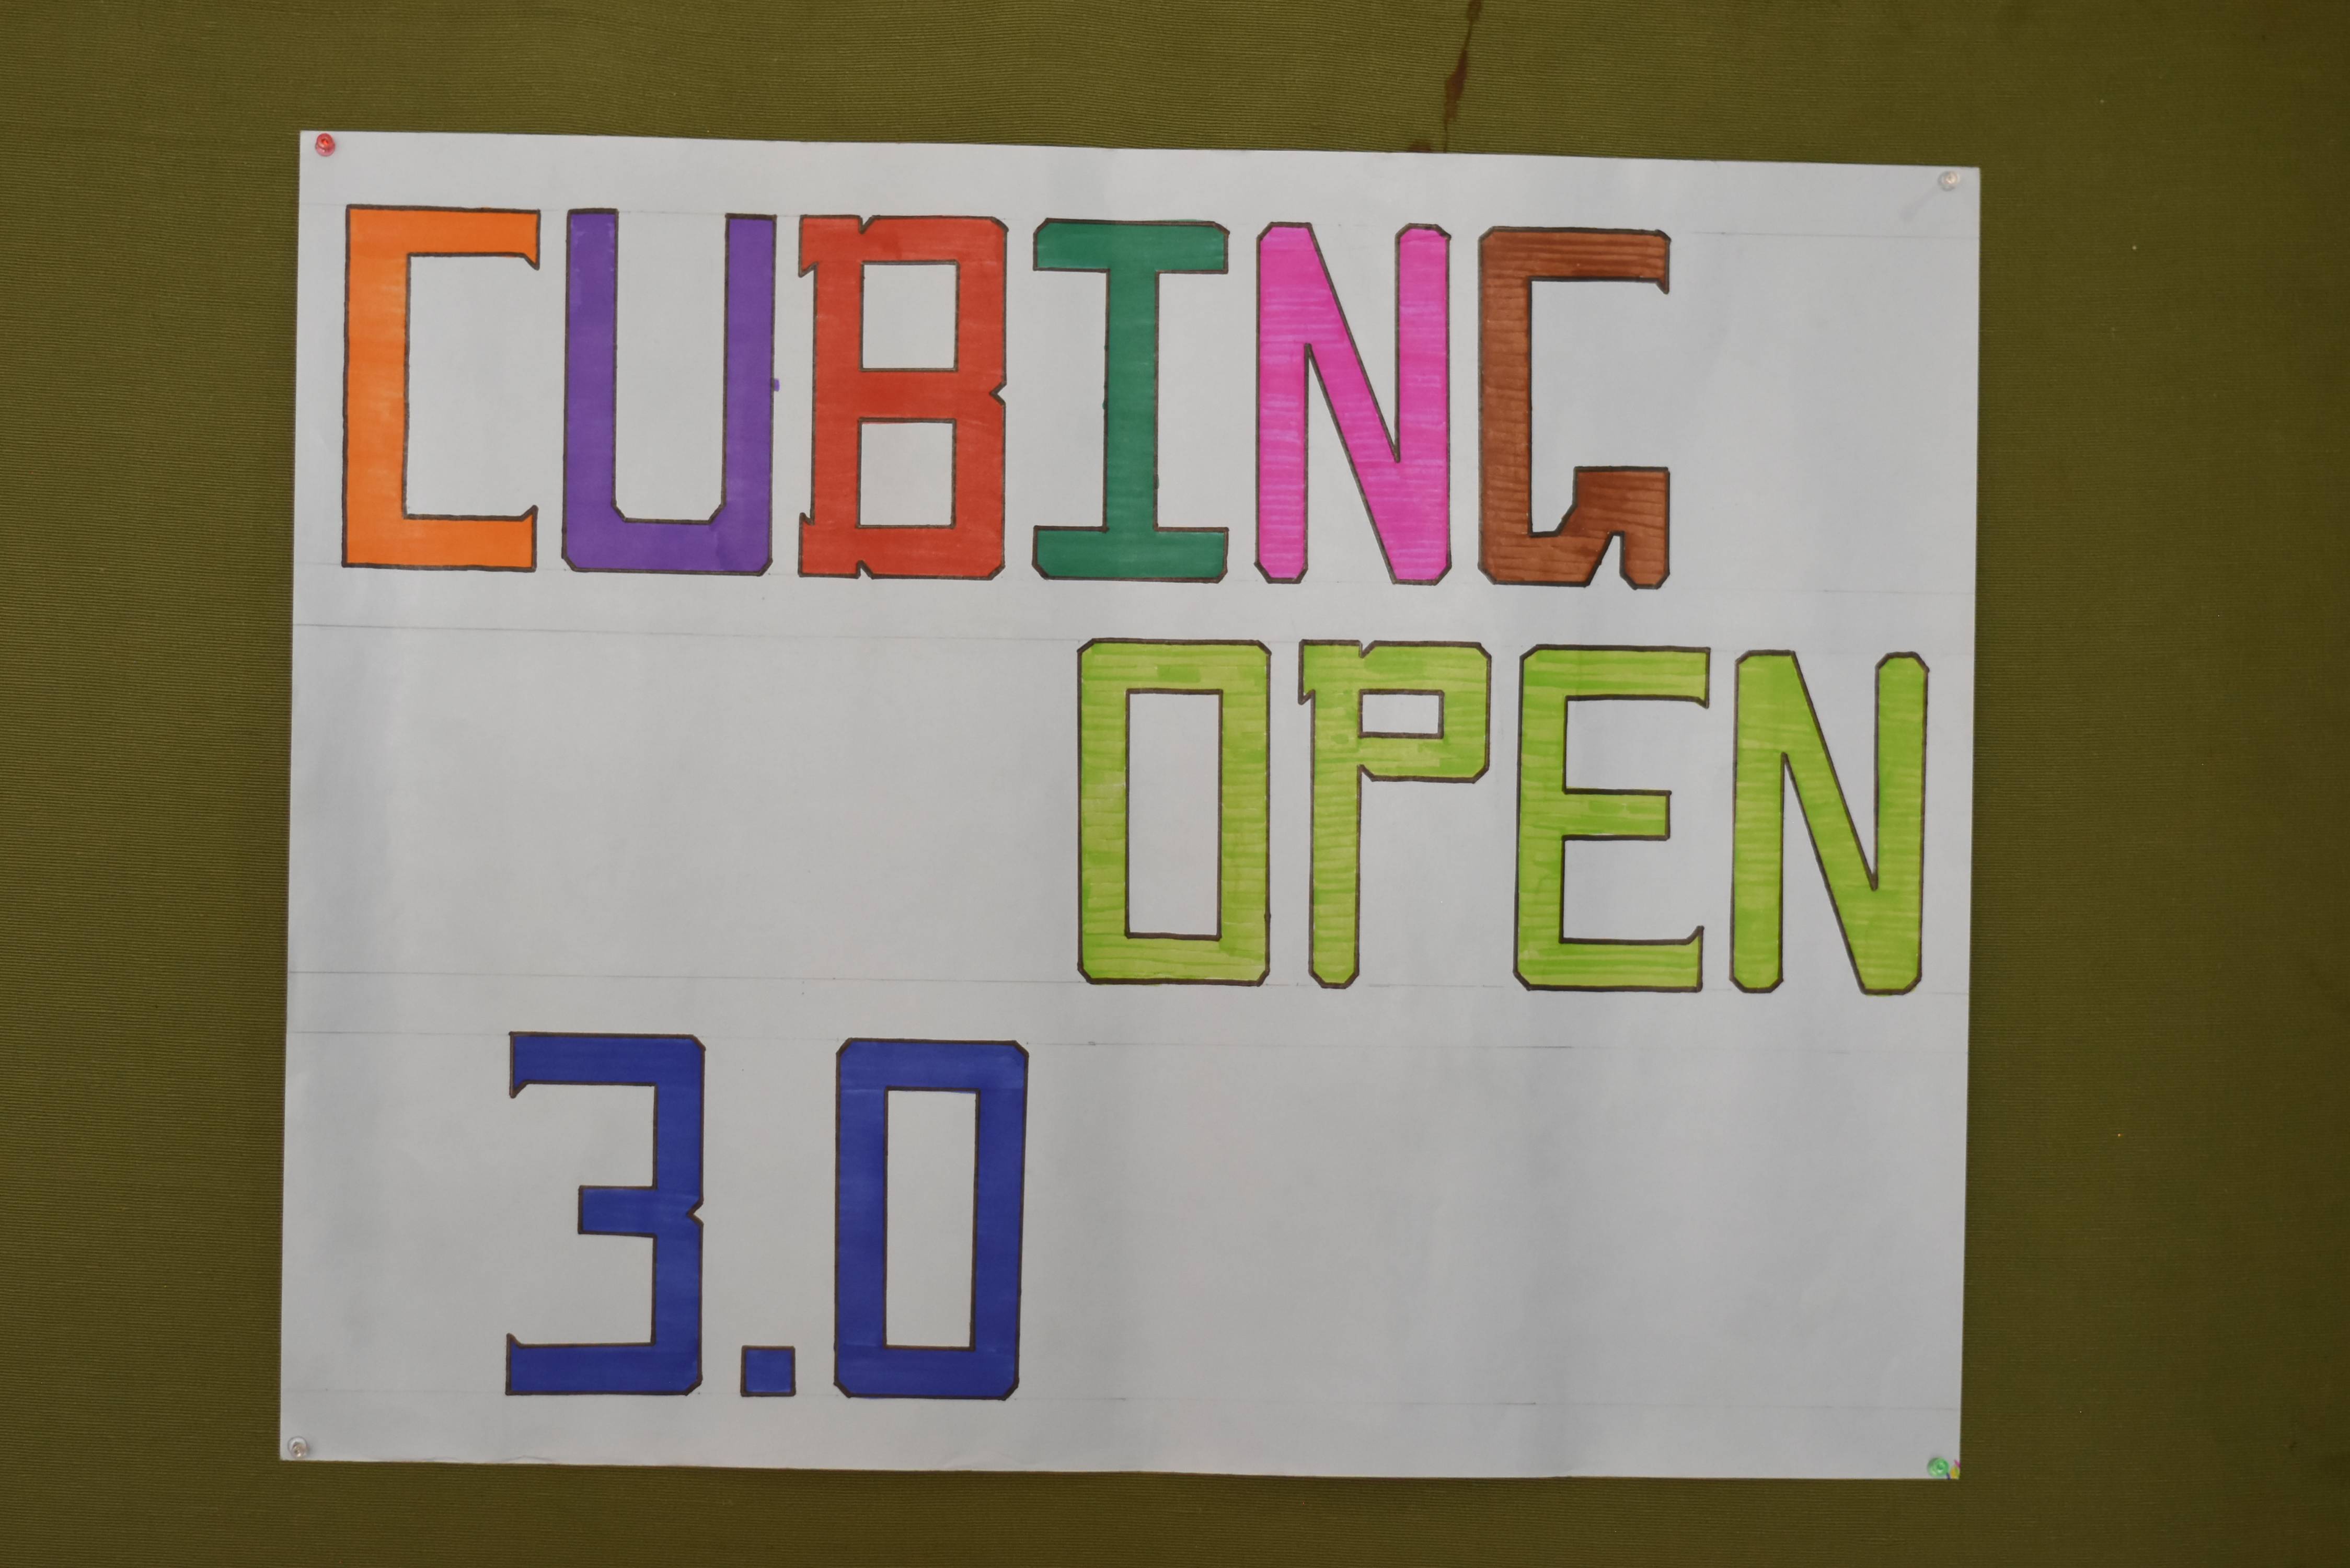 CUBING
OPEN
3.0